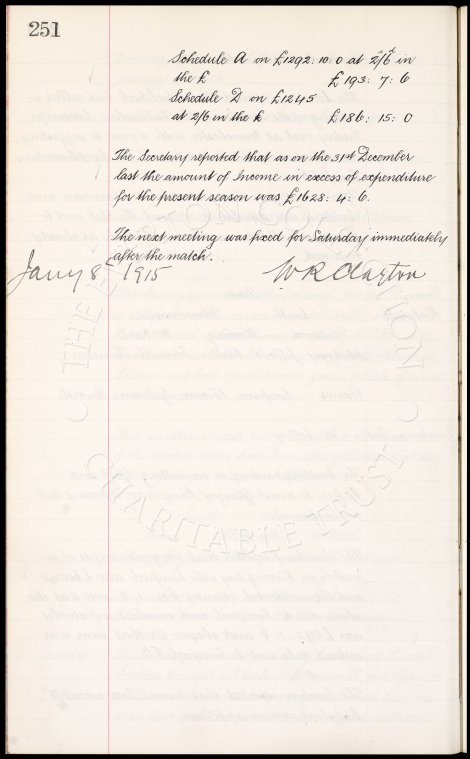 251
Schedule A on £1292: 10: 0 at 2/6d in
the £ £193: 7: 6
Schedule D on £1245
at 2/6 in the £ £186: 15: 0
The Secretary reported that as on the 31st December
last the amount of Income in excess of expenditure
for the present season was £1628: 4: 6.
The next meeting was fixed for Saturday immediately
after the match.
Jany 8 1915 W R Clayton
THE
TION
CHARITABLE TRUST